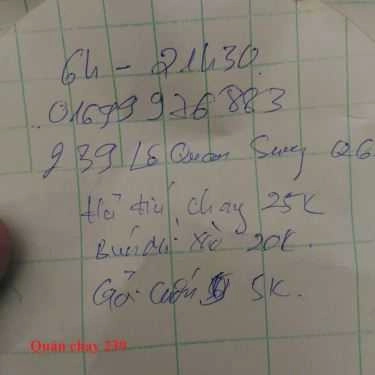 6h - 21h30
01699 976 883
239 Lê Quang Sung Q6
Hủ tiếu chay 25K
Bún xào 20K.
Gỏi cuốn 5K.
Quán chay 239